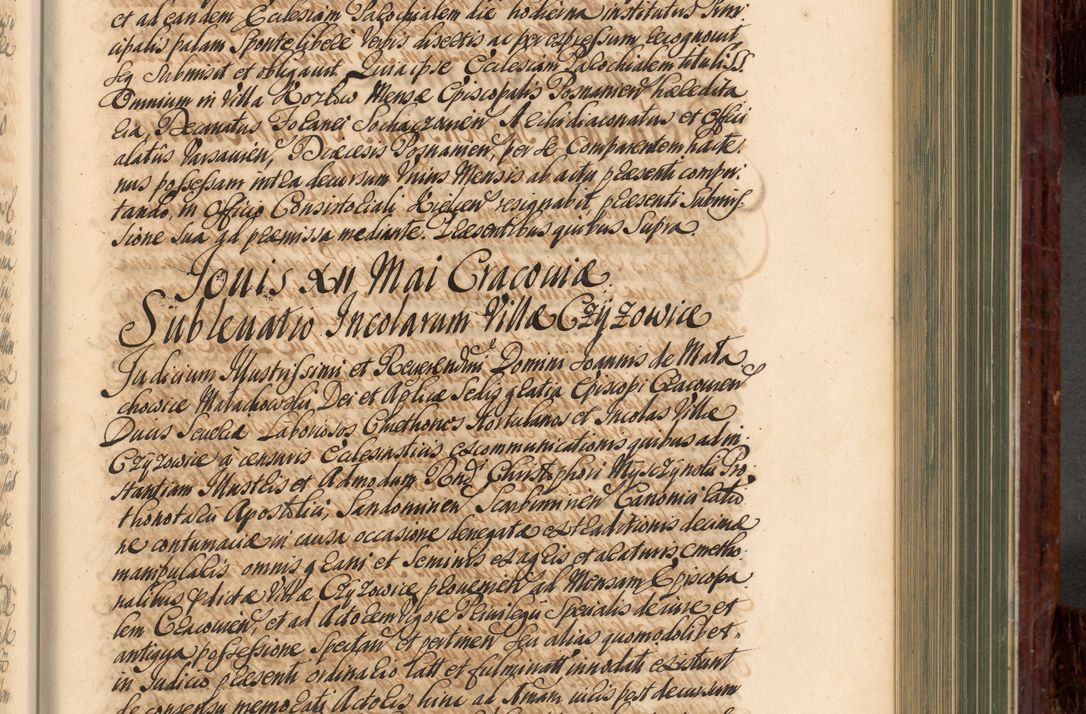 et ad eandem Ecclesiam Parochialem die hodierna institutus Prin:
cipalis palam sponte libere verbis discretis ac per expressum recognovit
seq submisit et obligavit, Quia ipse Ecclesiam Parochialem tituli SS.
Omnium in Villa Kozlow Mensæ Episcopalis Posnanien hæredita
ria, Decanatus Foranei Sochaczovien Archidiaconatus et Offici
alatûs Varsavien, Diæcesis Posnanien, per se Comparentem hacte
nus possessam intra decursum Unius Mensis ab actu præsenti compu:
tando, in Officio Consistoriali Kielcen resignabit præsenti submis
sione sua ad præmissa mediante. Præsentibus quibus supra.
Jovis XII Mai Cracoviæ.
Sublevatio Incolarum Villæ Czyżowice
Judicium Illustrissimi et Reverendmi Domini Joannis de Mała
chowice Małachowski, Dei et Aplicæ Sedis gratia Episcopi Cracovien
Ducis Severiæ Laboriosos Cmethones Hortulanos et Incolas Villæ
Czyżowice à censuris Ecclesiasticis excommunicationis quibus ad in:
stantiam Illustris et Admodum Rndi Christophori Mysczynski Pro:
thonotarii Apostolici, Sandomirien, Scarbimirien Canonici ratio
ne contumaciæ in causa occasione denegatæ extraditionis decimæ
manipularis omnis grani et seminis ex agris et araturis cmetho
nalibus pdictæ Villæ Czyżowice provenien ad Mensam Episcopa
lem Cracovien, et ad Actorem vigore Privilegii specialis de iure et
antiqua possessione spectan et pertinen seu alias quomodolibet,
in Judicio præsenti ordinario latt et fulminatt innodati existunt
de consensu memorati Actoris hinc ad Annm iuris post decursum